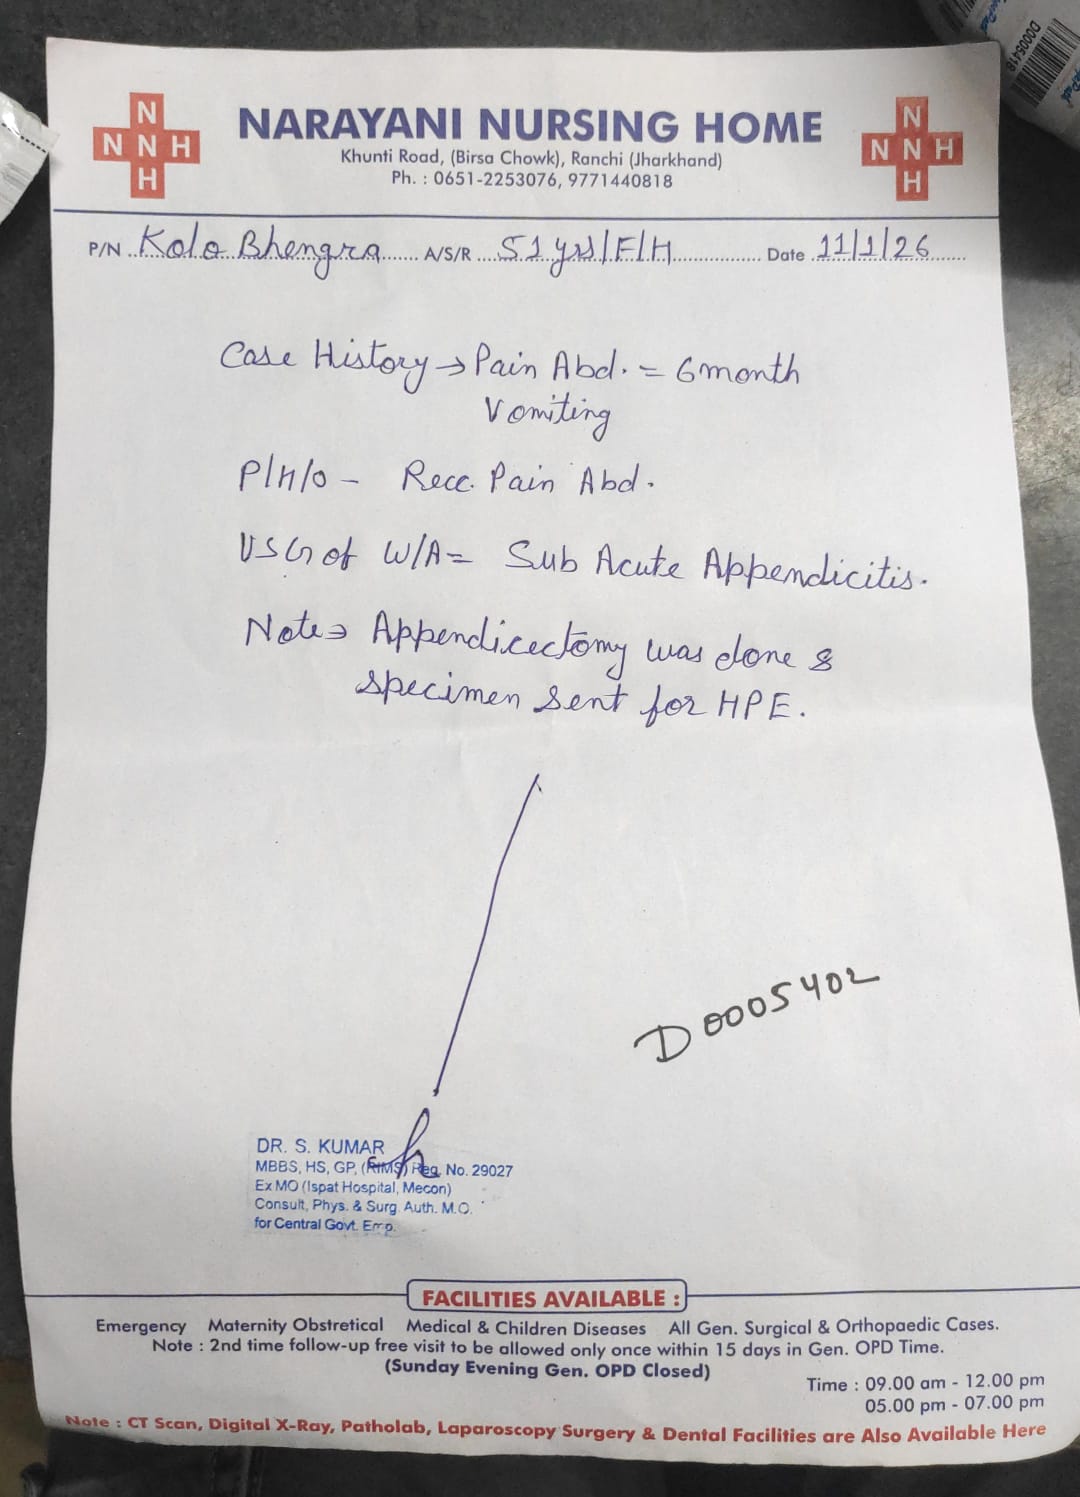 N
N N H
H
NARAYANI NURSING HOME
Khunti Road, (Birsa Chowk), Ranchi (Jharkhand)
Ph. : 0651-2253076, 9771440818
N
N N H
H
P/N Kolo Bhengra A/S/R 51 yrs/F/H Date 11/1/26
Case History → Pain Abd. = 6 month
Vomiting
P/H/O - Recc. Pain Abd.
USG of W/A = Sub Acute Appendicitis.
Note → Appendicectomy was done &
specimen sent for HPE.
D0005402
DR. S. KUMAR
MBBS, HS, GP, (RIMS) Reg. No. 29027
Ex MO (Ispat Hospital, Mecon)
Consult, Phys. & Surg. Auth. M.O.
for Central Govt. Emp.
FACILITIES AVAILABLE :
Emergency Maternity Obstretical Medical & Children Diseases All Gen. Surgical & Orthopaedic Cases.
Note : 2nd time follow-up free visit to be allowed only once within 15 days in Gen. OPD Time.
(Sunday Evening Gen. OPD Closed)
Time : 09.00 am - 12.00 pm
05.00 pm - 07.00 pm
Note : CT Scan, Digital X-Ray, Patholab, Laparoscopy Surgery & Dental Facilities are Also Available Here
D0005418